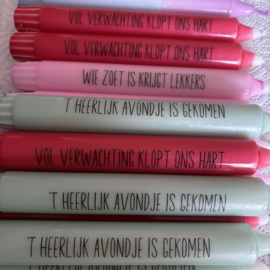 VOL VERWACHTING KLOPT ONS HART
VOL VERWACHTING KLOPT ONS HART
WIE ZOET IS KRIJGT LEKKERS
'T HEERLIJK AVONDJE IS GEKOMEN
VOL VERWACHTING KLOPT ONS HART
'T HEERLIJK AVONDJE IS GEKOMEN
'T HEERLIJK AVONDJE IS GEKOMEN